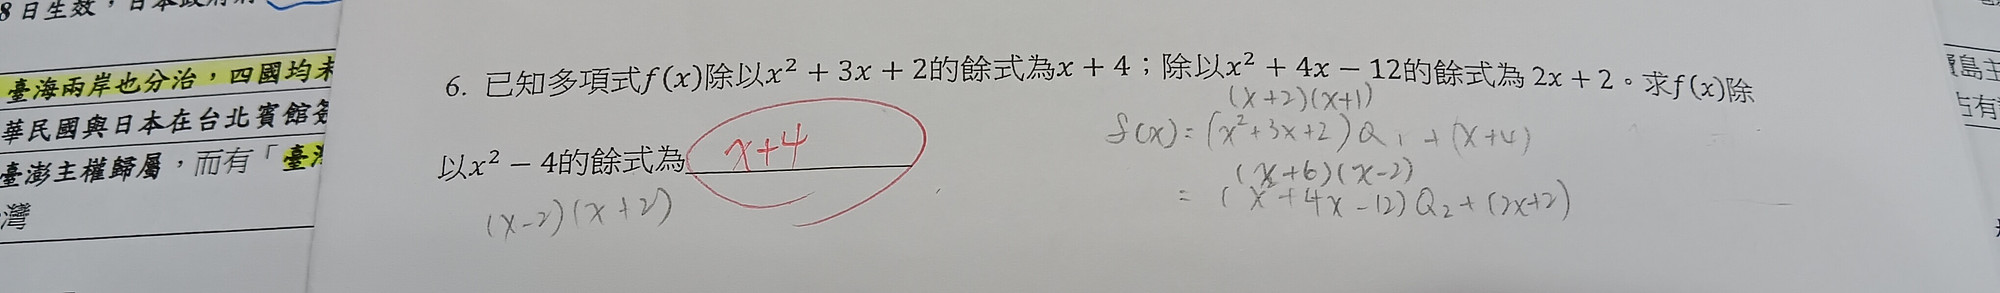 8日生效，日本政府
臺海兩岸也分治，四國均未
華民國與日本在台北賓館簽
臺澎主權歸屬，而有「臺灣
灣
6. 已知多項式f(x)除以x² + 3x + 2的餘式為x + 4；除以x² + 4x − 12的餘式為 2x + 2。求f(x)除
(x+2)(x+1)
f(x) = (x²+3x+2)Q₁+(x+4)
以x² − 4的餘式為 x+4
(x+6)(x-2)
= (x²+4x-12)Q₂+(2x+2)
(x-2)(x+2)
島主
占有